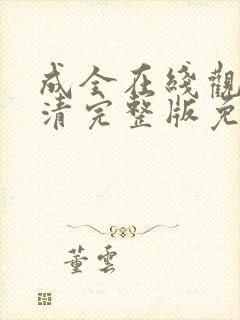 成全在綫觀
清完整版免
董雲